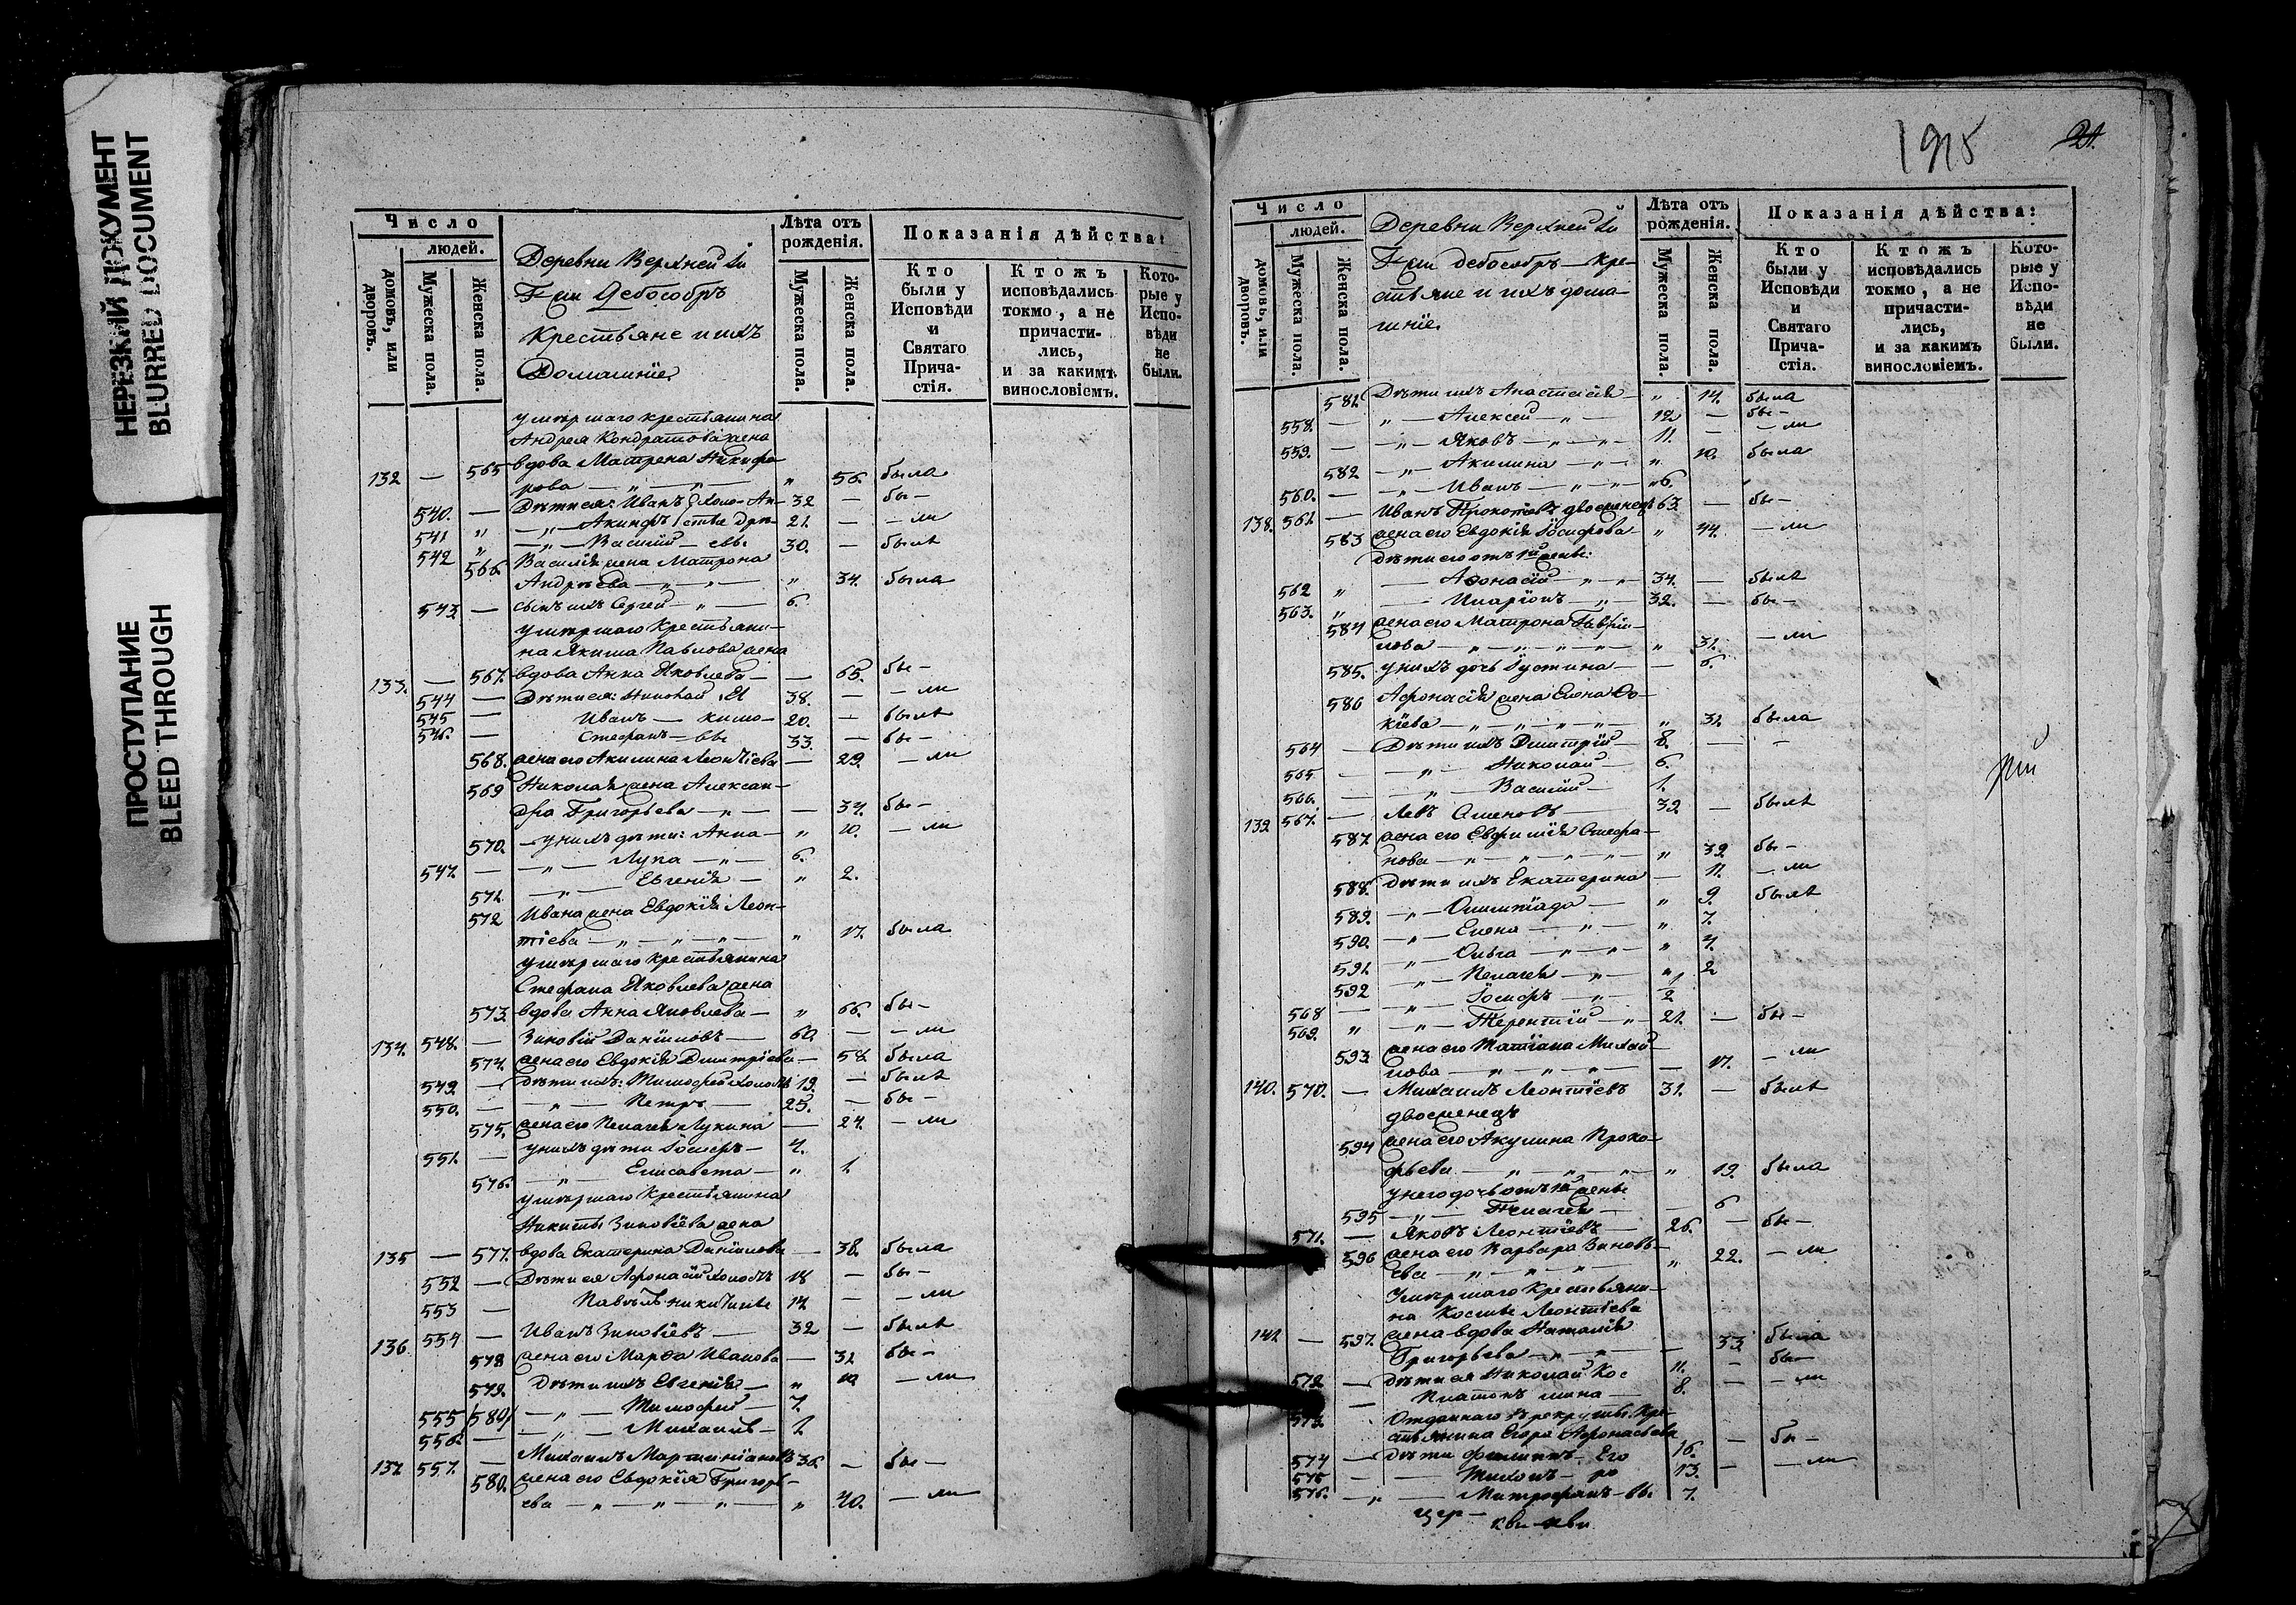 НЕРЕЗКИЙ ДОКУМЕНТ
BLURRED DOCUMENT
ПРОСТУПАНИЕ
BLEED THROUGH
Число
людей.
домовъ, или дворовъ.
Мужеска пола.
Женска пола.
Деревни Верхней
Крестьяне и ихъ
Домашніе
Лѣта отъ рожденія.
Мужеска пола.
Женска пола.
Показанія дѣйства:
Кто были у Исповѣди и Святаго Прича-стія.
Ктожъ исповѣдались токмо, а не причасти-лись, и за какимъ винословіемъ.
Кото-рые у Испо-вѣди не были.
умершаго крестьянина
Андрея Кондратова жена
132 — 565 вдова Матрена Никифо-
рова — „ — „ — „ 56. была
540. — Дѣти ея: Иванъ Холо- Ан- 32 — бы-
541 „ — „ — Акинфъ стые дре- 21. — - ли
542 „ — „ — Василій — евы 30. — былъ
566. Василія жена Матрона
Андреева — „ — „ — „ 34. была
543. — сынъ ихъ Сергей — „ — 6.
умершаго Крестьяни-
на Якима Павлова жена
133. — 567. вдова Анна Яковлева — — 65. бы-
544 — Дѣти ея: Николай Я 38. — - ли
545 — Иванъ — кимо- 20. — былъ
546. — Стефанъ — вы 33. — бы-
568. жена его Акилина Леонтіева — 29. - ли
569 Николая жена Алексан-
дра Григорьева — „ — — 34. бы-
570. — у нихъ дѣти: Анна — „ 10. - ли
547. — — „ — Лупа — „ — 6.
571. — „ — Евгенія — „ 2.
572 Ивана жена Евдокія Леон-
тіева — „ — „ — „ — „ 17. была
умершаго крестьянина
Стефана Яковлева жена
573. вдова Анна Яковлева — „ 66. бы-
134. 548. — Зиновій Даніиловъ — 60. — - ли
574. жена его Евдокія Димитріева — 58. была
549. — дѣти ихъ: Тимофей холостъ 19. — былъ
550. — — „ — Петръ — 25. — бы-
575. жена его Пелагея Лукина — 24. - ли
551. — у нихъ дѣти Іосифъ — 4.
576. — „ — Елисавета — „ 1.
умершаго Крестьянина
Никиты Зиновіева жена
135 — 577. вдова Екатерина Даніилова — 38. была
552 — Дѣти ея Афонасій холостъ 18 — бы-
553 — Павелъ Никитины 14 — - ли
136. 554 — Иванъ Зиновіевъ — 32 — былъ
578 жена его Марѳа Иванова — 31 бы-
579. Дѣти ихъ Евгенія — „ 10 - ли
555 580 — „ — Тимофей — 7.
556. — — „ — Михаилъ — 1.
137. 557. — Михаилъ Мартиніановъ 36. — бы-
580. жена его Евдокія Григорь-
ева — „ — „ — „ — „ 40. - ли
1915
21.
Число
людей.
домовъ, или дворовъ.
Мужеска пола.
Женска пола.
Деревни Верхней
Кре-
стьяне и ихъ дома-
шніе.
Лѣта отъ рожденія.
Мужеска пола.
Женска пола.
Показанія дѣйства:
Кто были у Исповѣди и Святаго Прича-стія.
Ктожъ исповѣдались токмо, а не причасти-лись, и за какимъ винословіемъ.
Кото-рые у Испо-вѣди не были.
581. Дѣти ихъ Анастасія — „ 14. была
558. — „ — Алексей — „ — 12 — бы-
559. — — „ — Яковъ — „ — „ — 11. — - ли
582 — „ — Акилина — „ — „ 10. была
560. — — „ — Иванъ — „ — „ 6.
138. 561. — Иванъ Прокопіевъ двоеженецъ 63. — бы-
583 жена его Евдокія Іосифова — „ 44. - ли
Дѣти его отъ 1й жены:
562 „ — Афонасій — „ — 34. — былъ
563. „ — Иларіонъ — „ — 32. — бы-
584 жена его Матрона Гаврии-
лова — „ — „ — „ 31. - ли
585. у нихъ дочь Іустина — — 6.
586 Афонасія жена Елена Фо-
кіева — „ — „ — „ — „ 31. была
564 — Дѣти ихъ Димитрій — 8. — -
565. — — „ — Николай — 6.
566. — — „ — Василій — 1.
139 567. — Левъ Семеновъ — 39 — былъ
587. жена его Евфимія Стефа-
нова — „ — „ — „ — „ 39. бы-
588. Дѣти ихъ Екатерина — — 11. - ли
589. — „ — Олимпіада — „ 9. былѣ
590. — „ — Елена — „ — „ 7.
591. — „ — Ольга — „ — „ 4.
592 — „ — Пелагея — „ — „ 2
568 — — „ — Іосифъ — „ — 1/2
569. „ — „ — Терентій — „ — 21. — бы-
593. жена его Татіана Михай-
лова — „ — „ — „ — 17. - ли
140. 570. — Михаилъ Леонтіевъ 31. — былъ
двоеженецъ
594 жена его Акулина Проко-
фьева — „ — „ — „ — „ 19. была
у него дочь отъ 1й жены
595 — „ — Пелагея — — 6
571. — Яковъ Леонтіевъ — 26. — бы-
596 жена его Варвара Зиновь-
ева — „ — „ — „ — „ 22. - ли
Умершаго Крестьяни-
на Косьмы Леонтіева
141 — 597. жена вдова Наталія
Григорьева — „ — „ — — 33. была
572 — дѣти ея Николай Кос 11. — бы-
573. — Платонъ мина — 8. — - ли
Отданнаго въ рекруты Кре-
стьянина Егора Афонасьева
574 — дѣти Филиппъ — Его 16. — бы-
575 — Тихонъ — ро 13. — - ли
576. — „ — Митрофанъ — вы. 7.